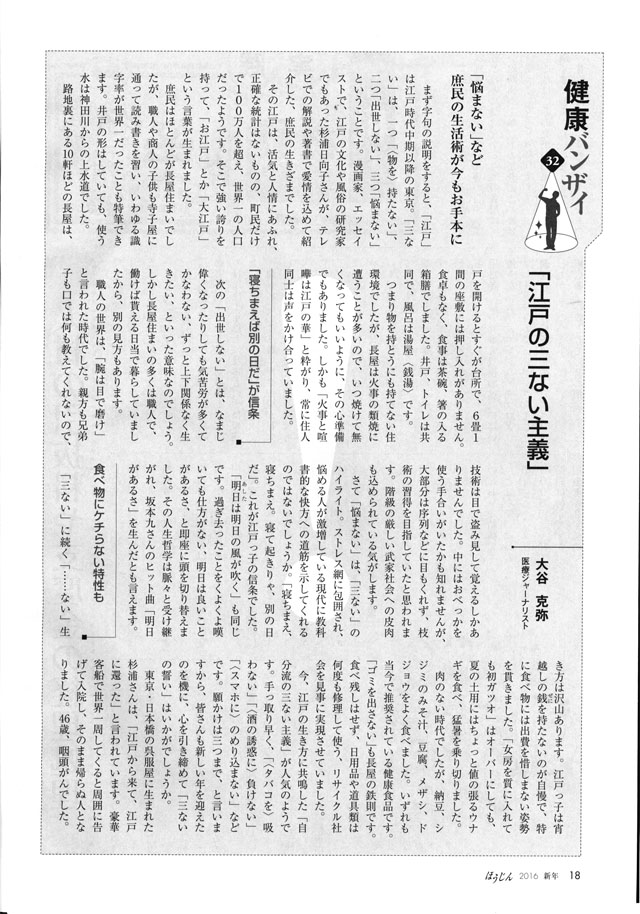 健康バンザイ
32
「江戸の三ない主義」
大谷 克弥
医療ジャーナリスト
「悩まない」など
庶民の生活術が今もお手本に
まず字句の説明をすると、「江戸」
は江戸時代中期以降の東京。「三な
い」は、一つ「(物を)持たない」、
二つ「出世しない」、三つ「悩まない」
ということです。漫画家、エッセイ
ストで、江戸の文化や風俗の研究家
でもあった杉浦日向子さんが、テレ
ビでの解説や著書で愛情を込めて紹
介した、庶民の生きざまでした。
その江戸は、活気と人情にあふれ、
正確な統計はないものの、町民だけ
で100万人を超え、世界一の人口
だったようです。そこで強い誇りを
持って、「お江戸」とか「大江戸」
という言葉が生まれました。
庶民はほとんどが長屋住まいでし
たが、職人や商人の子供も寺子屋に
通って読み書きを習い、いわゆる識
字率が世界一だったことも特筆でき
ます。井戸の形はしていても、使う
水は神田川からの上水道でした。
路地裏にある10軒ほどの長屋は、
戸を開けるとすぐが台所で、6畳1
間の座敷には押し入れがありません。
食卓もなく、食事は茶碗、箸の入る
箱膳でしました。井戸、トイレは共
同で、風呂は湯屋(銭湯)です。
つまり物を持とうにも持てない住
環境でしたが、長屋は火事の類焼に
遭うことが多いので、いつ焼けて無
くなってもいいように、その心準備
でもありました。しかも「火事と喧
嘩は江戸の華」と粋がり、常に住人
同士は声をかけ合っていました。
「寝ちまえば別の日だ」が信条
次の「出世しない」とは、なまじ
偉くなったりしても気苦労が多くて
かなわない、ずっと上下関係なく生
きたい、といった意味なのでしょう。
しかし長屋住まいの多くは職人で、
働けば貰える日当で暮らしていまし
たから、別の見方もあります。
職人の世界は、「腕は目で磨け」
と言われた時代でした。親方も兄弟
子も口では何も教えてくれないので、
技術は目で盗み見して覚えるしかあ
りませんでした。中にはおべっかを
使う手合いがいたかも知れませんが、
大部分は序列などに目もくれず、技
術の習得を目指していたと思われま
す。階級の厳しい武家社会への皮肉
も込められている気がします。
さて「悩まない」は、「三ない」の
ハイライト。ストレス網に包囲され、
悩める人が激増している現代に教科
書的な快方への道筋を示してくれる
のではないでしょうか。「寝ちまえ、
寝ちまえ。寝て起きりゃ、別の日
だ」。これが江戸っ子の信条でした。
「明日は明日の風が吹く」も同じ
あした
です。過ぎ去ったことをくよくよ嘆
いても仕方がない、明日は良いこと
があるさ、と即座に頭を切り替えま
した。その人生哲学は脈々と受け継
がれ、坂本九さんのヒット曲「明日
があるさ」を生んだとも言えます。
食べ物にケチらない特性も
「三ない」に続く「……ない」生
き方は沢山あります。江戸っ子は宵
越しの銭を持たないのが自慢で、特
に食べ物には出費を惜しまない姿勢
を貫きました。「女房を質に入れて
も初ガツオ」はオーバーにしても、
夏の土用にはちょっと値の張るウナ
ギを食べ、猛暑を乗り切りました。
肉のない時代でしたが、納豆、シ
ジミのみそ汁、豆腐、メザシ、ド
ジョウをよく食べました。いずれも
当今で推奨されている健康食品です。
「ゴミを出さない」も長屋の鉄則です。
食べ残しはせず、日用品や道具類は
何度も修理して使う、リサイクル社
会を見事に実現させていました。
今、江戸の生き方に共鳴した「自
分流の三ない主義」が人気のようで
す。手っ取り早く、「(タバコを)吸
わない」「(酒の誘惑に)負けない」
「(スマホに)のめり込まない」など
です。願かけは三つまで、と言いま
すから、皆さんも新しい年を迎えた
のを機に、心を引き締めて「三ない
の誓い」はいかがでしょうか。
東京・日本橋の呉服屋に生まれた
杉浦さんは、「江戸から来て、江戸
に還った」と言われています。豪華
客船で世界一周してくると周囲に告
げて入院し、そのまま帰らぬ人とな
りました。46歳、咽頭がんでした。
ほうじん 2016 新年 18